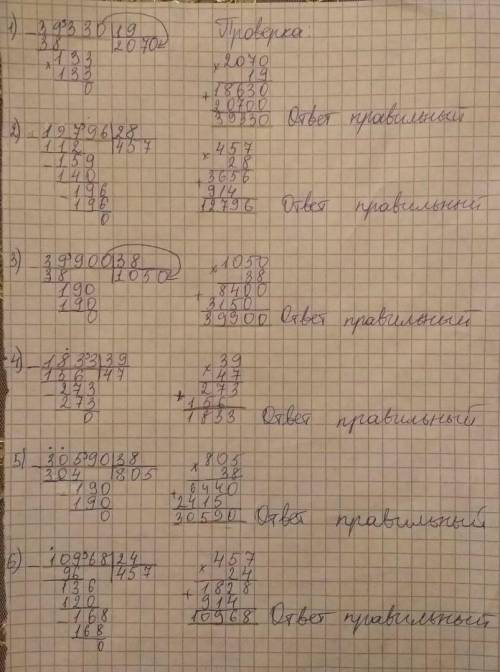 1) 39330 | 19 Проверка:
38 | 2070
133 × 2070
133 19
0 + 18630
20700
39330 Ответ правильный
2) - 12796 | 28
112 | 457 × 457
- 159 28
140 + 3656
- 196 914
196 12796 Ответ правильный
0
3) - 39900 | 38 × 1050
38 | 1050 38
190 + 8400
190 3150
0 39900 Ответ правильный
4) - 1833 | 39 × 39
156 | 47 47
- 273 + 273
273 156
0 1833 Ответ правильный
5) - 30590 | 38 × 805
304 | 805 38
- 190 + 6440
190 2415
0 30590 Ответ правильный
6) - 10968 | 24 × 457
96 | 457 24
136 + 1828
120 914
- 168 10968 Ответ правильный
168
0